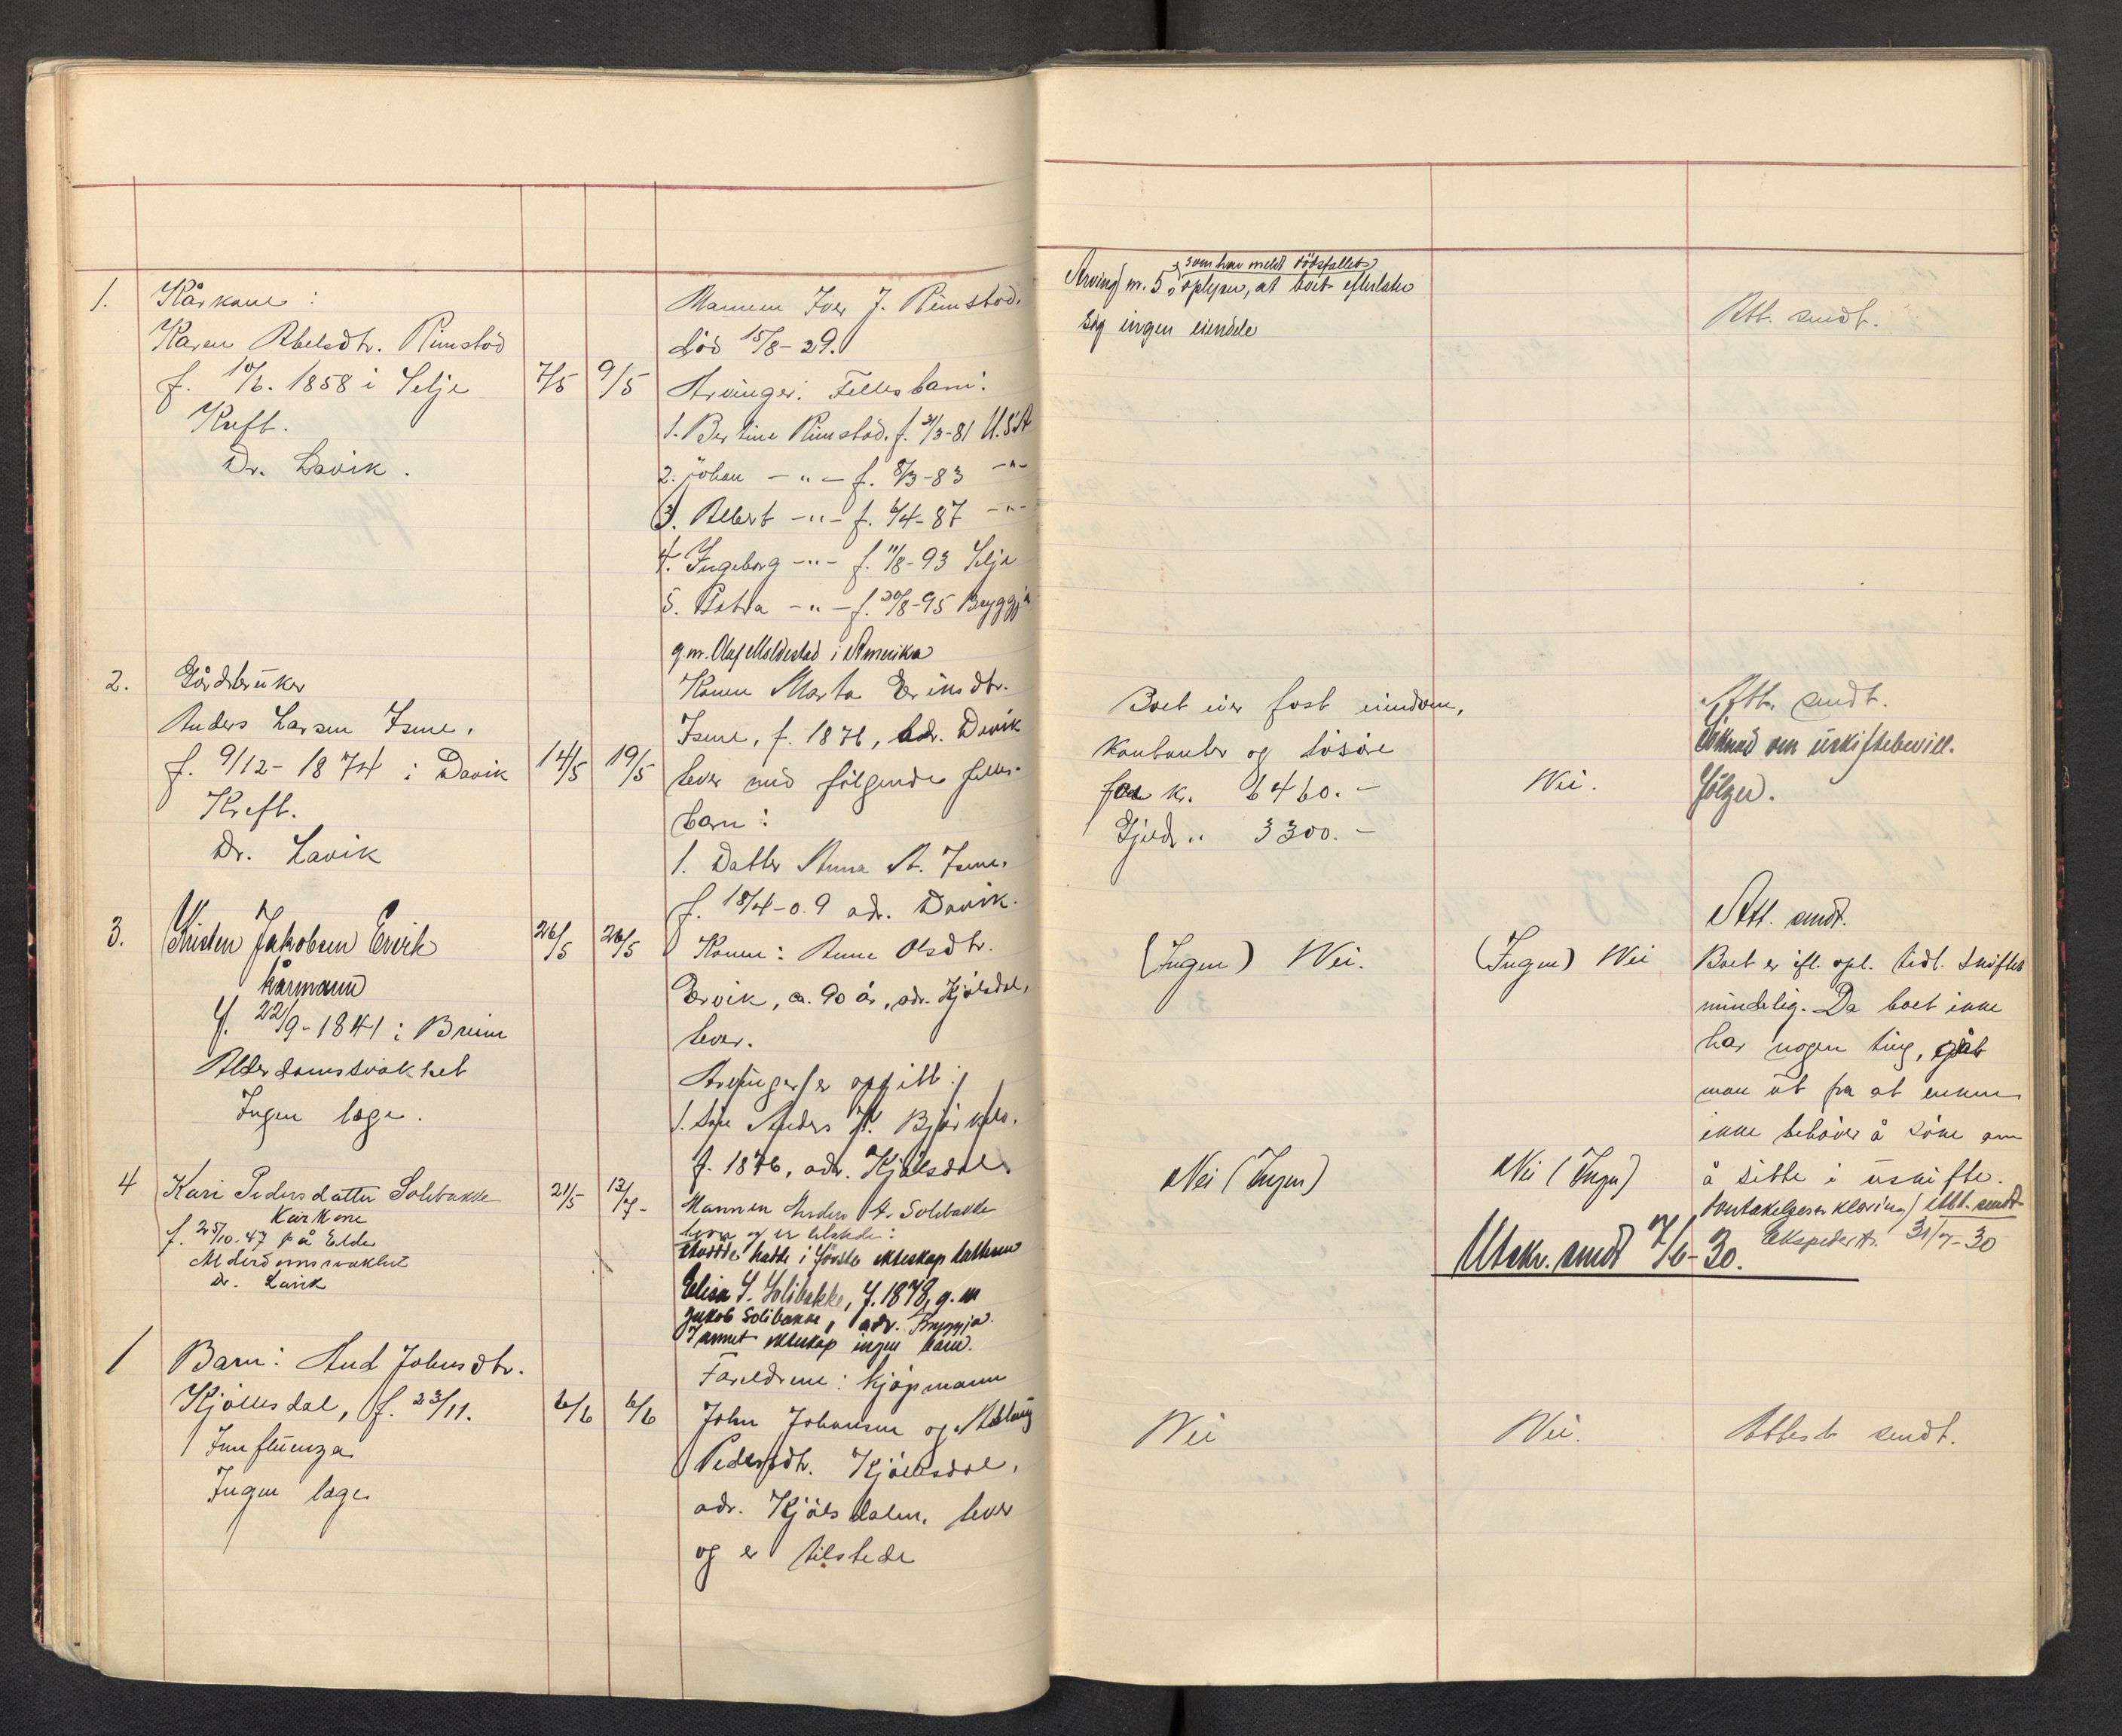 1.
Kårkone:
Karen Abelsdtr. Rimstød
f. 10/6. 1858 i Selje
Kreft.
Dr. Lavik.
7/5
9/5
Mannen Iver J. Rimstød.
død 15/8-29.
Arvinger: Fellesbarn:
1. Bertine Rimstød. f. 31/3-81 U.S.A
2. Johan -"- f. 8/3-83 -"-
3. Albert -"- f. 6/4-87 -"-
4. Ingeborg -"- f. 11/8-93 Selje
5. Petra -"- f. 20/8-95 Bryggja
g.m. Olaf Moldestad i Amerika
som har meldt dødsfallet
Arving m. 5 oplyser, at boet efterlater
sig ingen eiendele
Att. sendt.
2.
Gårdbruker
Anders Larsen Isene.
f. 9/12-1874 i Davik
Kreft.
Dr. Lavik
14/5
19/5
Konen Marta Erinsdtr.
Isene, f. 1876, adr. Davik
lever med følgende felles-
barn:
1. Datter Anna A. Isene.
f. 18/4-09 adr. Davik.
Boet eier fast eiendom,
kontanter og løsøre
for kr. 6460.-
Gjeld " 3300.-
Nei.
Att. sendt.
Søknad om uskiftebevill.
følger.
3.
Kristen Jakobsen Ervik
kårmann
f. 22/9-1841 i Breim
Alderdomssvakhet
Ingen læge.
26/5
26/5
Konen: Anne Olsdtr.
Ervik, ca. 90 år, adr. Kjølsdal,
lever.
Arvinger er opgitt:
1. Søn Anders K. Bjørkelo.
f. 1876, adr. Kjølsdal
(Ingen) Nei.
(Ingen) Nei
Att. sendt.
Boet er ifl. opl. tidl. skiftet
mindelig. Da boet ikke
har nogen ting, går
man ut fra at enken
ikke behøver å søke om
å sitte i uskifte.
4
Kari Pedersdatter Solibakke
Kårkone
f. 25/10.47 på Elde
Alderdomssvakhet
Dr. Lavik
21/5
13/7-
Mannen Anders A. Solibakke
lever og er tilstede:
Avdøde hadde i første ekteskap datteren
Elisa S. Solibakke, f. 1878, g.m
Jakob Solibakke, adr. Bryggja.
I annet ekteskap ingen barn.
Nei (Ingen)
Nei (Ingen)
Overtakelseserklæring/Att. sendt
Ekspedert. 31/7-30
Utskr. sendt 7/6-30.
1
Barn: Aud Johnsdtr.
Kjølsdal, f. 23/11.
Innfluenza
Ingen læge
6/6
6/6
Foreldrene: Kjøpmann
John Johansen og
Pedersdtr. Kjølsdal,
adr. Kjølsdalen, lever
og er tilstede
Nei
Nei.
Attest sendt.